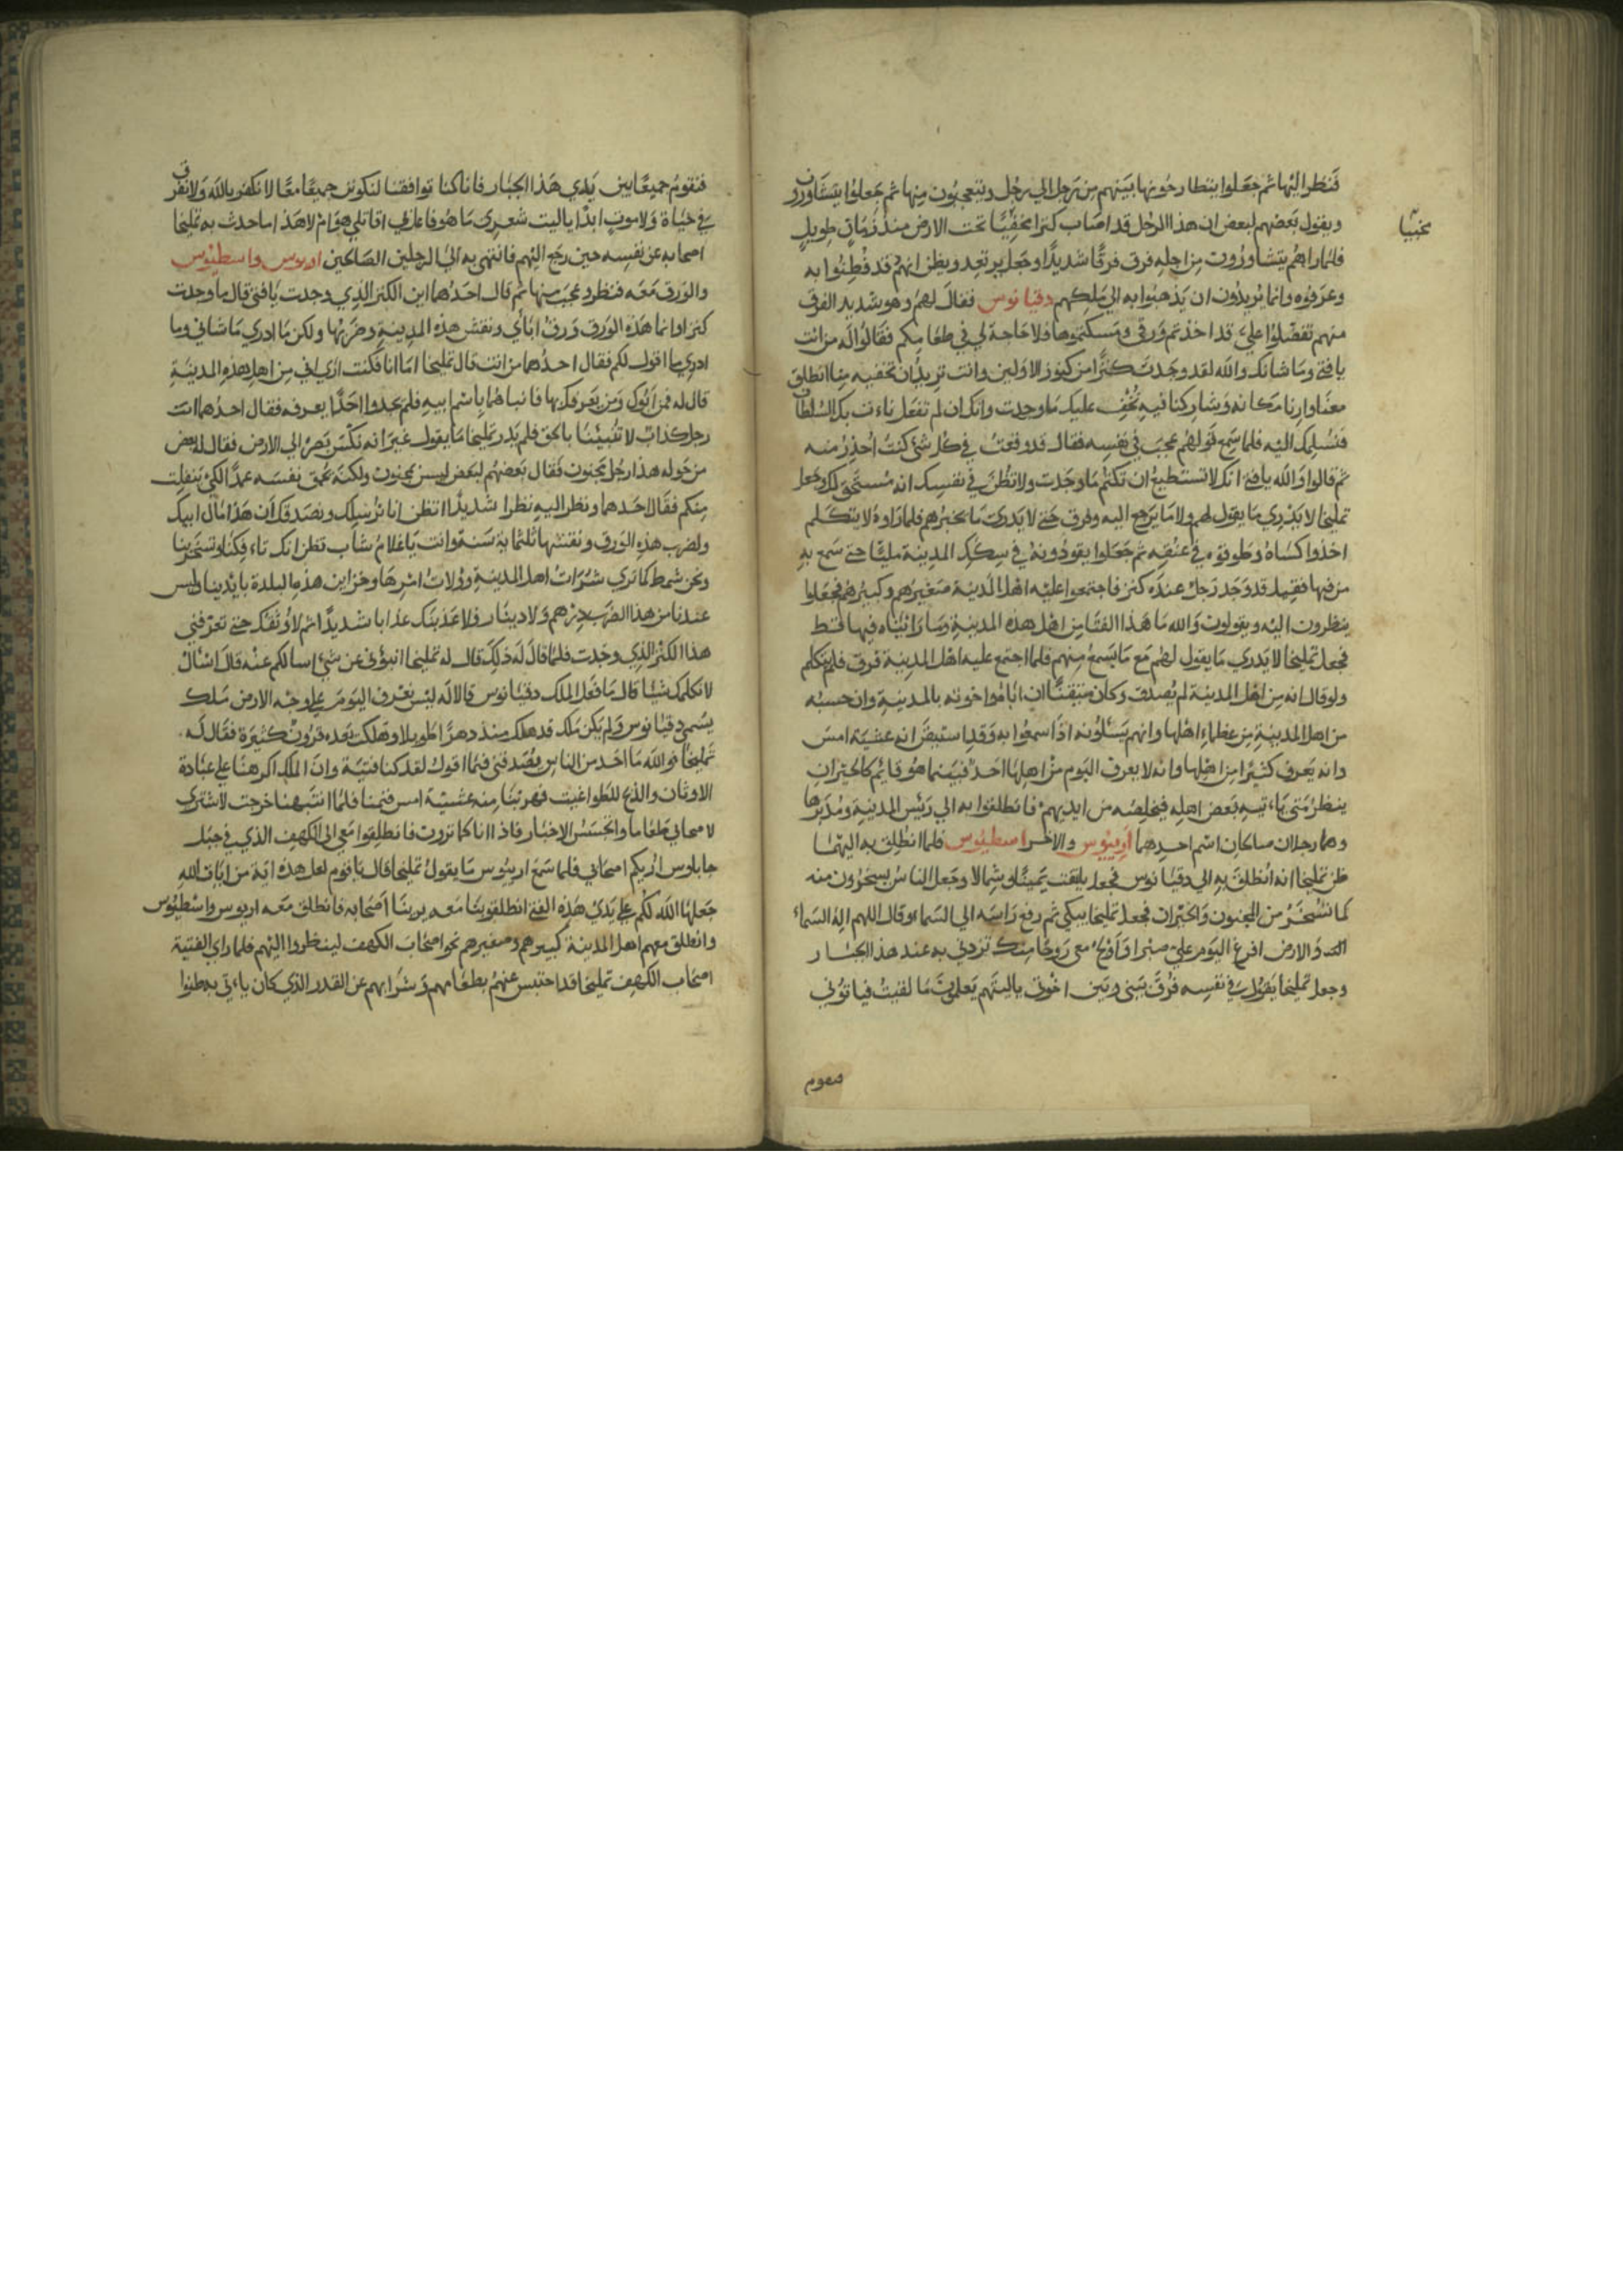 فنظر اليها ثم جعلوا يتطارحونها بينهم من رجل الي رجل ويتعجبون منها ثم جعلوا يتشاورون
ويقول بعضهم لبعض ان هذا الرجل قد اصاب كنزا مخفيا تحت الارض منذ زمان طويل
مخبيا
فلما راهم يتشاورون من اجله فرق فرقا شديدا وجعل يرتعد ويظن انهم قد فطنوا به
وعرفوه وانما يريدون ان يذهبوا به الي ملكهم دقيانوس فقال لهم وهو شديد الفرق
منهم تفضلوا علي قد اخذتم ورقي ومسكتموها فلا حاجة لي في طعامكم فقالوا له من انت
يا فتي وما شانك والله لقد وجدت كنزا من كنوز الاولين وانت تريد ان تخفيه منا انطلق
معنا وارنا مكانه وشاركنا فيه نخف عليك ما وجدت وانك ان لم تفعل ناءت بك السلطان
فنسلمك اليه فلما سمع قولهم عجب في نفسه فقال قد وقعت في كل شئ كنت احذر منه
ثم قالوا والله يا فتي انك لا تستطيع ان تكتم ما وجدت ولا تظن في نفسك انه مستحق لك وجعل
تمليخا لا يدري ما يقول لهم ولا ما يرجع اليه وفرق حتي لا يدري ما يخبرهم فلما راوه لا يتكلم
اخذوا كساه وطوقوه في عنقه ثم جعلوا يقودونه في سكك المدينة مليا حتي سمع به
من فيها فقيل قد وجد رجل عنده كنز فاجتمعوا عليه اهل المدينة صغيرهم وكبيرهم فجعلوا
ينظرون اليه ويقولون والله ما هذا الفتا من اهل هذه المدينة وما رايناه فيها قط
فجعل تمليخا لا يدري ما يقول لهم مع ما يسمع منهم فلما اجتمع عليه اهل المدينة فرق فلم يتكلم
ولو قال انه من اهل المدينة لم يصدق وكان متيقنا ان اباه واخوته بالمدينة وان حسبه
من اهل المدينة من عظماء اهلها وانهم يسئلونه اذا سمعوا به وقد استيقن انه عشية امس
وانه يعرف كثيرا من اهلها وانه لا يعرف اليوم من اهلها احد فبينما هو قايم كالحيران
ينظر متي ياءتيه بعض اهله فيخلصه من ايديهم فانطلقوا به الي رئيس المدينة ومدبرها
وهما رجلان صالحان اسم احدهما اريوس والاخر اسطيوس فلما انطلق به اليهما
ظن تمليخا انه انطلق به الي دقيانوس فجعل يلتفت يمينا وشمالا وجعل الناس يسخرون منه
كما تسخر من المجنون والحيران فجعل تمليخا يبكي ثم رفع راسه الي السماء وقال اللهم اله السماء
والارض افرغ اليوم علي صبرا واولج معي روحا منك تؤيدني به عند هذا الجبار
وجعل تمليخا يقول في نفسه فرق بيني وبين اخوتي يا ليتهم يعلمون ما لقيت فياتوني
فنقوم
فنقوم جميعا بين يدي هذا الجبار فانا كنا توافقنا لنكونن جميعا معا لا نكفر بالله ولا نفرق
في حياة ولا موت ابدا يا ليت شعري ما هو فاعل بي اقاتلي هو ام لا هذا ما حدث به تمليخا
اصحابه عن نفسه حين رجع اليهم فانتهي به الي الرجلين الصالحين اريوس واسطيوس
والورق معه فنظر وعجب منها ثم قال احدهما اين الكنز الذي وجدت يا فتي قال ما وجدت
كنزا وانما هذه الورق ورق ابائي ونقش هذه المدينة وضربها ولكن ما ادري ما شاني وما
ادري ما اقول لكم فقال احدهما من انت قال تمليخا اما انا فكنت اري اني من اهل هذه المدينة
قال له فمن ابوك ومن يعرفك بها فانباهما باسم ابيه فلم يجدوا احدا يعرفه فقال احدهما انت
رجل كذاب لا تنبيئنا بالحق فلم يدر تمليخا ما يقول غير انه نكس بصره الي الارض فقال له بعض
من حوله هذا رجل مجنون فقال بعضهم لبعض ليس بمجنون ولكنه يحمق نفسه عمدا لكي ينفلت
منكم فقال احدهما ونظر اليه نظرا شديدا اتظن انا نرسلك ونصدقك ان هذا مال ابيك
ولضرب هذه الورق ونقشها ثلثماية سنة وانت يا غلام شاب تظن انك تاءفكنا وتسخر بنا
ونحن شمط كما تري شراة اهل المدينة وولات امرها وخزاين هذه البلدة بايدينا وليس
عندنا من هذا الضرب درهم ولا دينار ولاعذبنك عذابا شديدا ثم لاوثقنك حتي تعرفني
هذا الكنز الذي وجدت فلما قال له ذلك قال له تمليخا انبؤني عن شئ اسالكم عنه قالا اسال
لا نكلمك شيئا قال ما فعل الملك دقيانوس قالا له ليس نعرف اليوم علي وجه الارض ملك
يسمي دقيانوس ولم يكن ملك قد هلك منذ دهرا طويلا وهلكت بعده قرون كثيرة فقال له
تمليخا فوالله ما احد من الناس يصدقني فيما اقول لقد كنا فتية وان الملك اكرهنا علي عبادة
الاوثان والذبح للطواغيت فهربنا منه عشية امس فنمنا فلما انتبهنا خرجت لاشتري
لاصحابي طعاما واتجسس الاخبار فاذا انا كما ترون فانطلقوا معي الي الكهف الذي في جبل
جابلوس اريكم اصحابي فلما سمع اريوس ما يقول تمليخا قال يا قوم لعل هذه اية من ايات الله
جعلها الله لكم علي يدي هذه الفتي انطلقوا بنا معه يرينا اصحابه فانطلق معه اريوس واسطيوس
وانطلق معهم اهل المدينة كبيرهم وصغيرهم نحو اصحاب الكهف لينظروا اليهم فلما راي الفتية
اصحاب الكهف تمليخا قد احتبس عنهم بطعامهم وشرابهم عن القدر الذي كان ياءتي به ظنوا